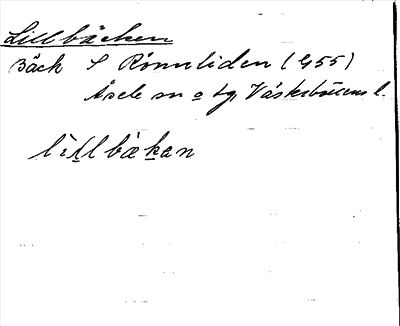 Lillbäcken
Bäck S Rönnliden (G55)
Åsele sn o tg, Västerbottens l.
lìllbäkan